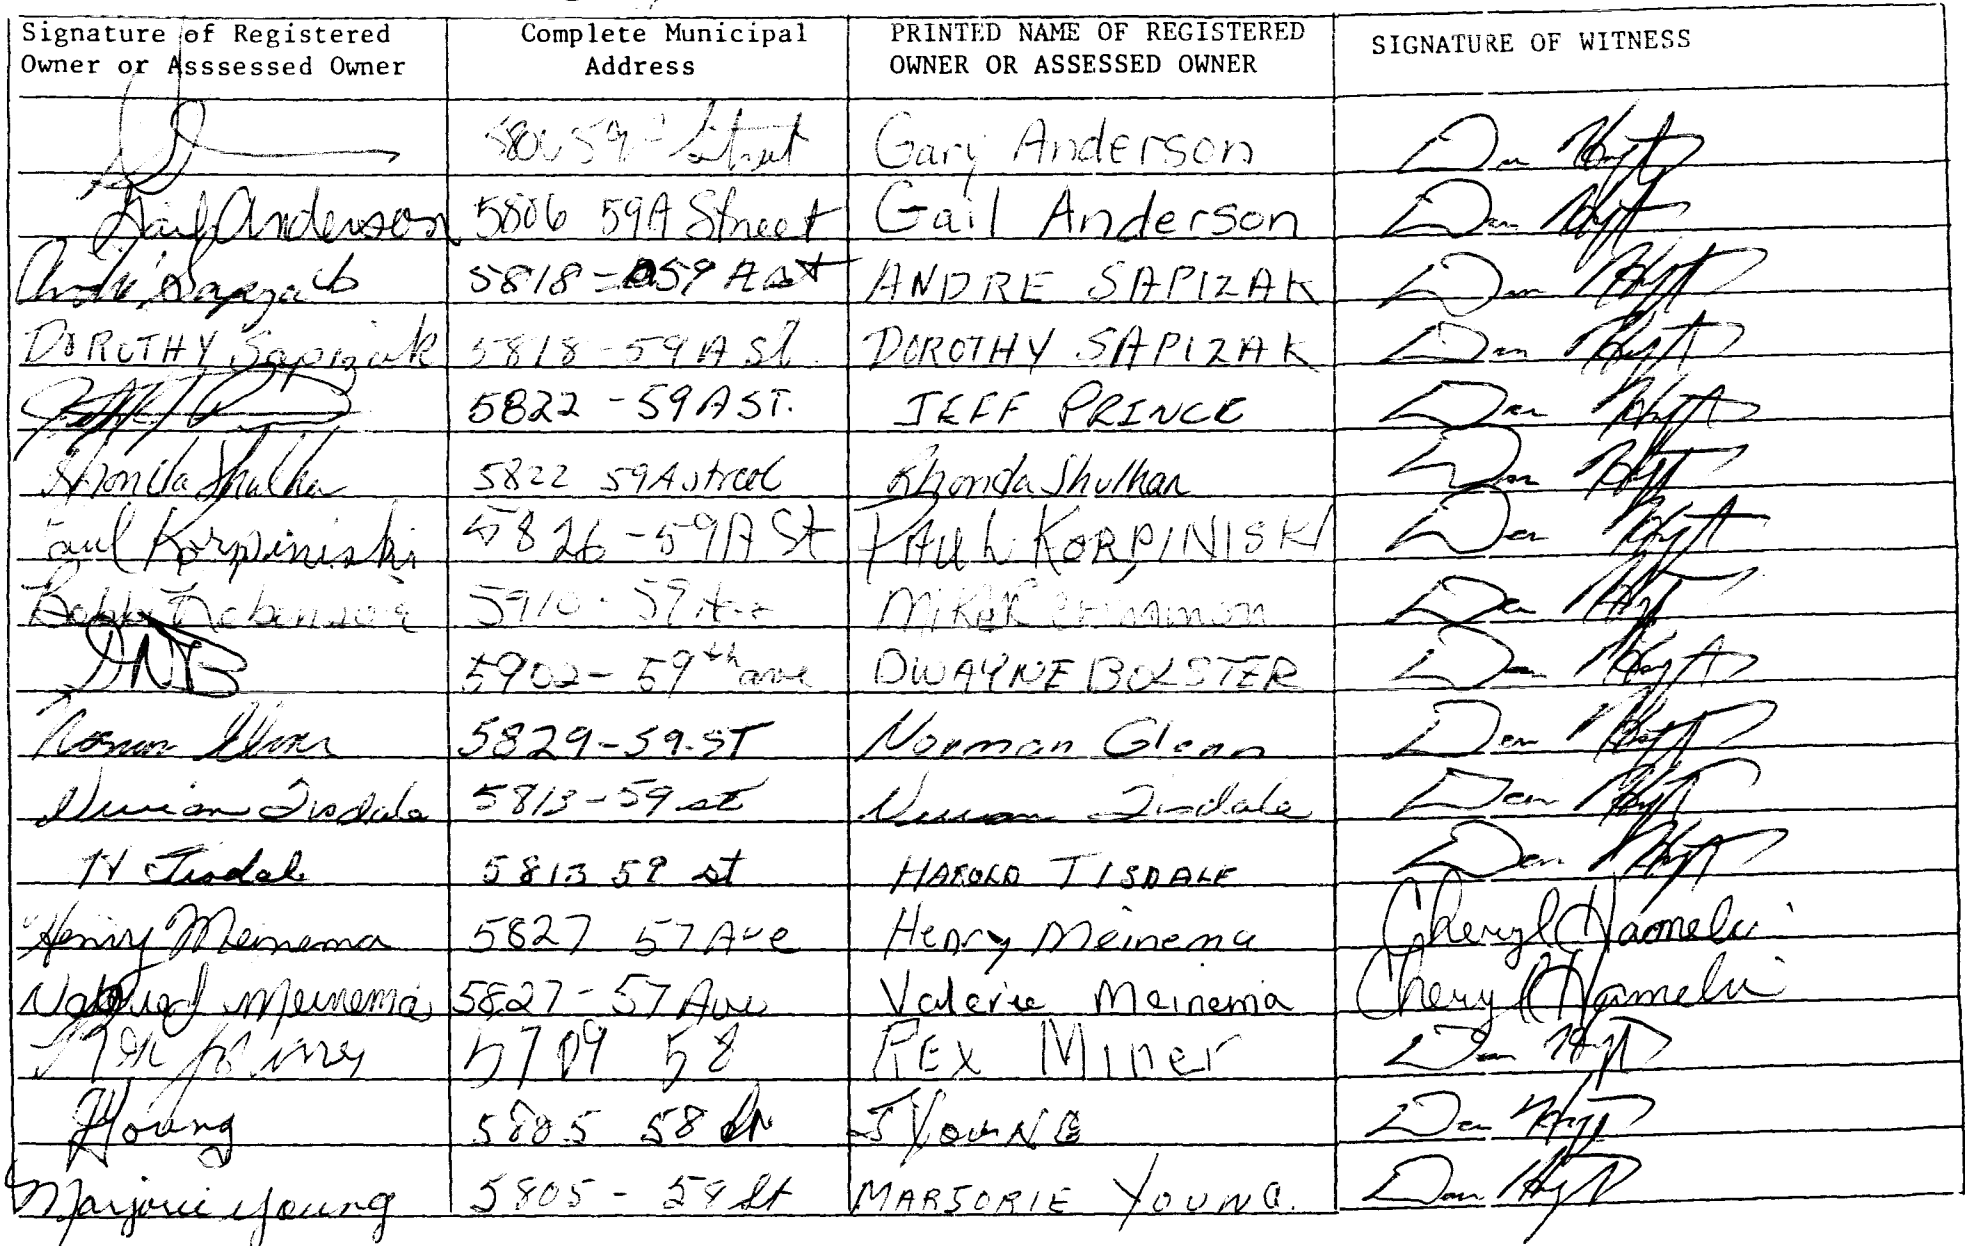 Signature of Registered Owner or Asssessed Owner
Complete Municipal Address
PRINTED NAME OF REGISTERED OWNER OR ASSESSED OWNER
SIGNATURE OF WITNESS
5806 59 Street Gary Anderson Dan Hyt
Gail Anderson 5806 59A Street Gail Anderson Dan Hyt
Andre Sapizak 5818-59 A st ANDRE SAPIZAK Dan Hyt
DOROTHY Sapizak 5818-59A St. DOROTHY SAPIZAK Dan Hyt
5822-59A ST. JEFF PRINCE Dan Hyt
Rhonda Shulhan 5822 59A street Rhonda Shulhan Dan Hyt
Paul Korpiniski 5826-59A St PAUL KORPINISKI Dan Hyt
Bobby Robinson 5910-59 Ave Dan Hyt
DNB 5902-59th ave DWAYNE BOLSTER Dan Hyt
Norman Glenn 5829-59-ST Norman Glenn Dan Hyt
Vivian Tisdale 5813-59 st Vivian Tisdale Dan Hyt
H Tisdale 5813 59 st HAROLD TISDALE Dan Hyt
Henry Meinema 5827 57 Ave Henry Meinema Cheryl Hamelin
Valerie Meinema 5827-57 Ave Valerie Meinema Cheryl Hamelin
5709 58 REX Miner Dan Hyt
J Young 5805 58 St J YOUNG Dan Hyt
Marjorie Young 5805 - 58 St MARJORIE YOUNG. Dan Hyt